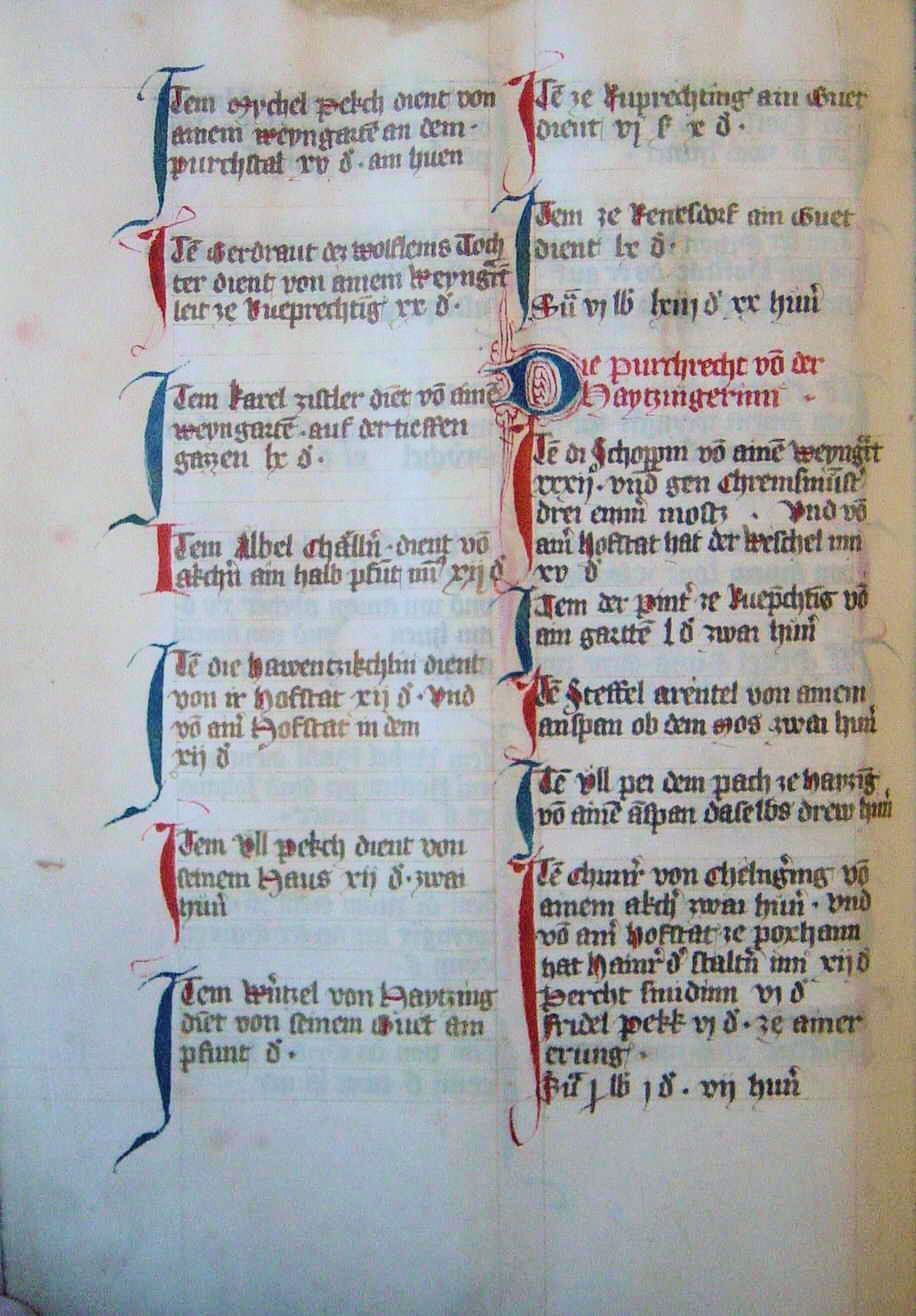 Item Mychel pekch dient von
ainem weyngartē an dem·
purchstal xv ₰· ain huen
Itē Gerdraut dez wolfleins Toch
ter dient von ainem weyngͣrt
leit ze Rueprechtīg xx ₰·
Item karel zistler diēt vō ainē
weyngartē· auf der tieffen
gazzen lx ₰·
Item Albel · dient vō
akchn̄ ain halb pfūt xij ₰
Itē die dient
von ir Hofstat xij ₰· Vnd
vō aim̄ Hofstat in dem
xij ₰
Item Vll pekch dient von
seinem Haus xij ₰· zwai
hun̄
Item von Haytzing
diēt von seinem Guet ain
pfunt ₰·
Itē ze Ruprechting ain Guet
dient vj ſ x ₰·
Item ze ain Guet
dient lx ₰·
Sūͫ vj lb lxiij ₰ xx hun̄
Die purchrecht vō der
Haytzingerinn·
Itē di Schoppin vō ainē weyngͣrt
xxxij· vnd gen Chremſmūſt̄
drei emm̄ mostz · Vnd vō
aim̄ hofstat hat der weschel inn
xv ₰
Item der pint̄ ze Ruep̄chtīg vō
ain gartē l ₰ zwai hun̄
Itē Steffel arentel von ainem
anspan ob dem mos zwai hun̄
Itē Vll pei dem pach ze haytzīg
vō ainē āspan daselbs drew hun̄
Itē chunr̄ von vō
ainem akch̄ zwai hun̄· vnd
vō aim̄ hofstat ze poxhann
hat hainr̄ inn xij ₰
Percht smidinn vj ₰
Fridel pekk vj ₰· ze ainer
erung·
Sūͫ j lb j ₰· vij hun̄